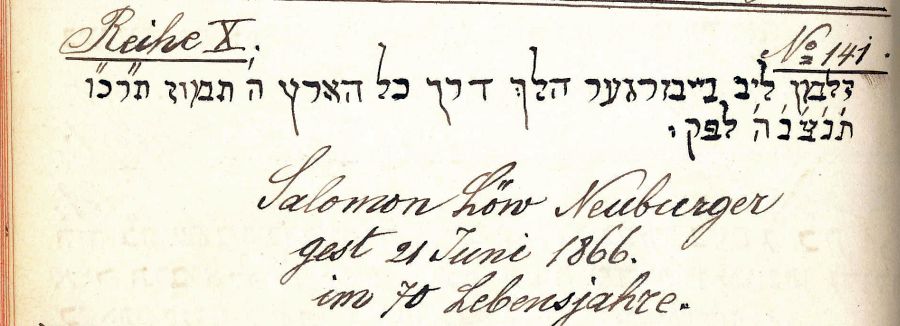 Reihe X.
No 141.
זלמן ליב נייבורגער הלך דרך כל הארץ ח' תמוז תרכ"ו
ת'נ'צ'ב'ה' לפק.
Salomon Löw Neuburger
gest 21 Juni 1866.
im 70 Lebensjahre.